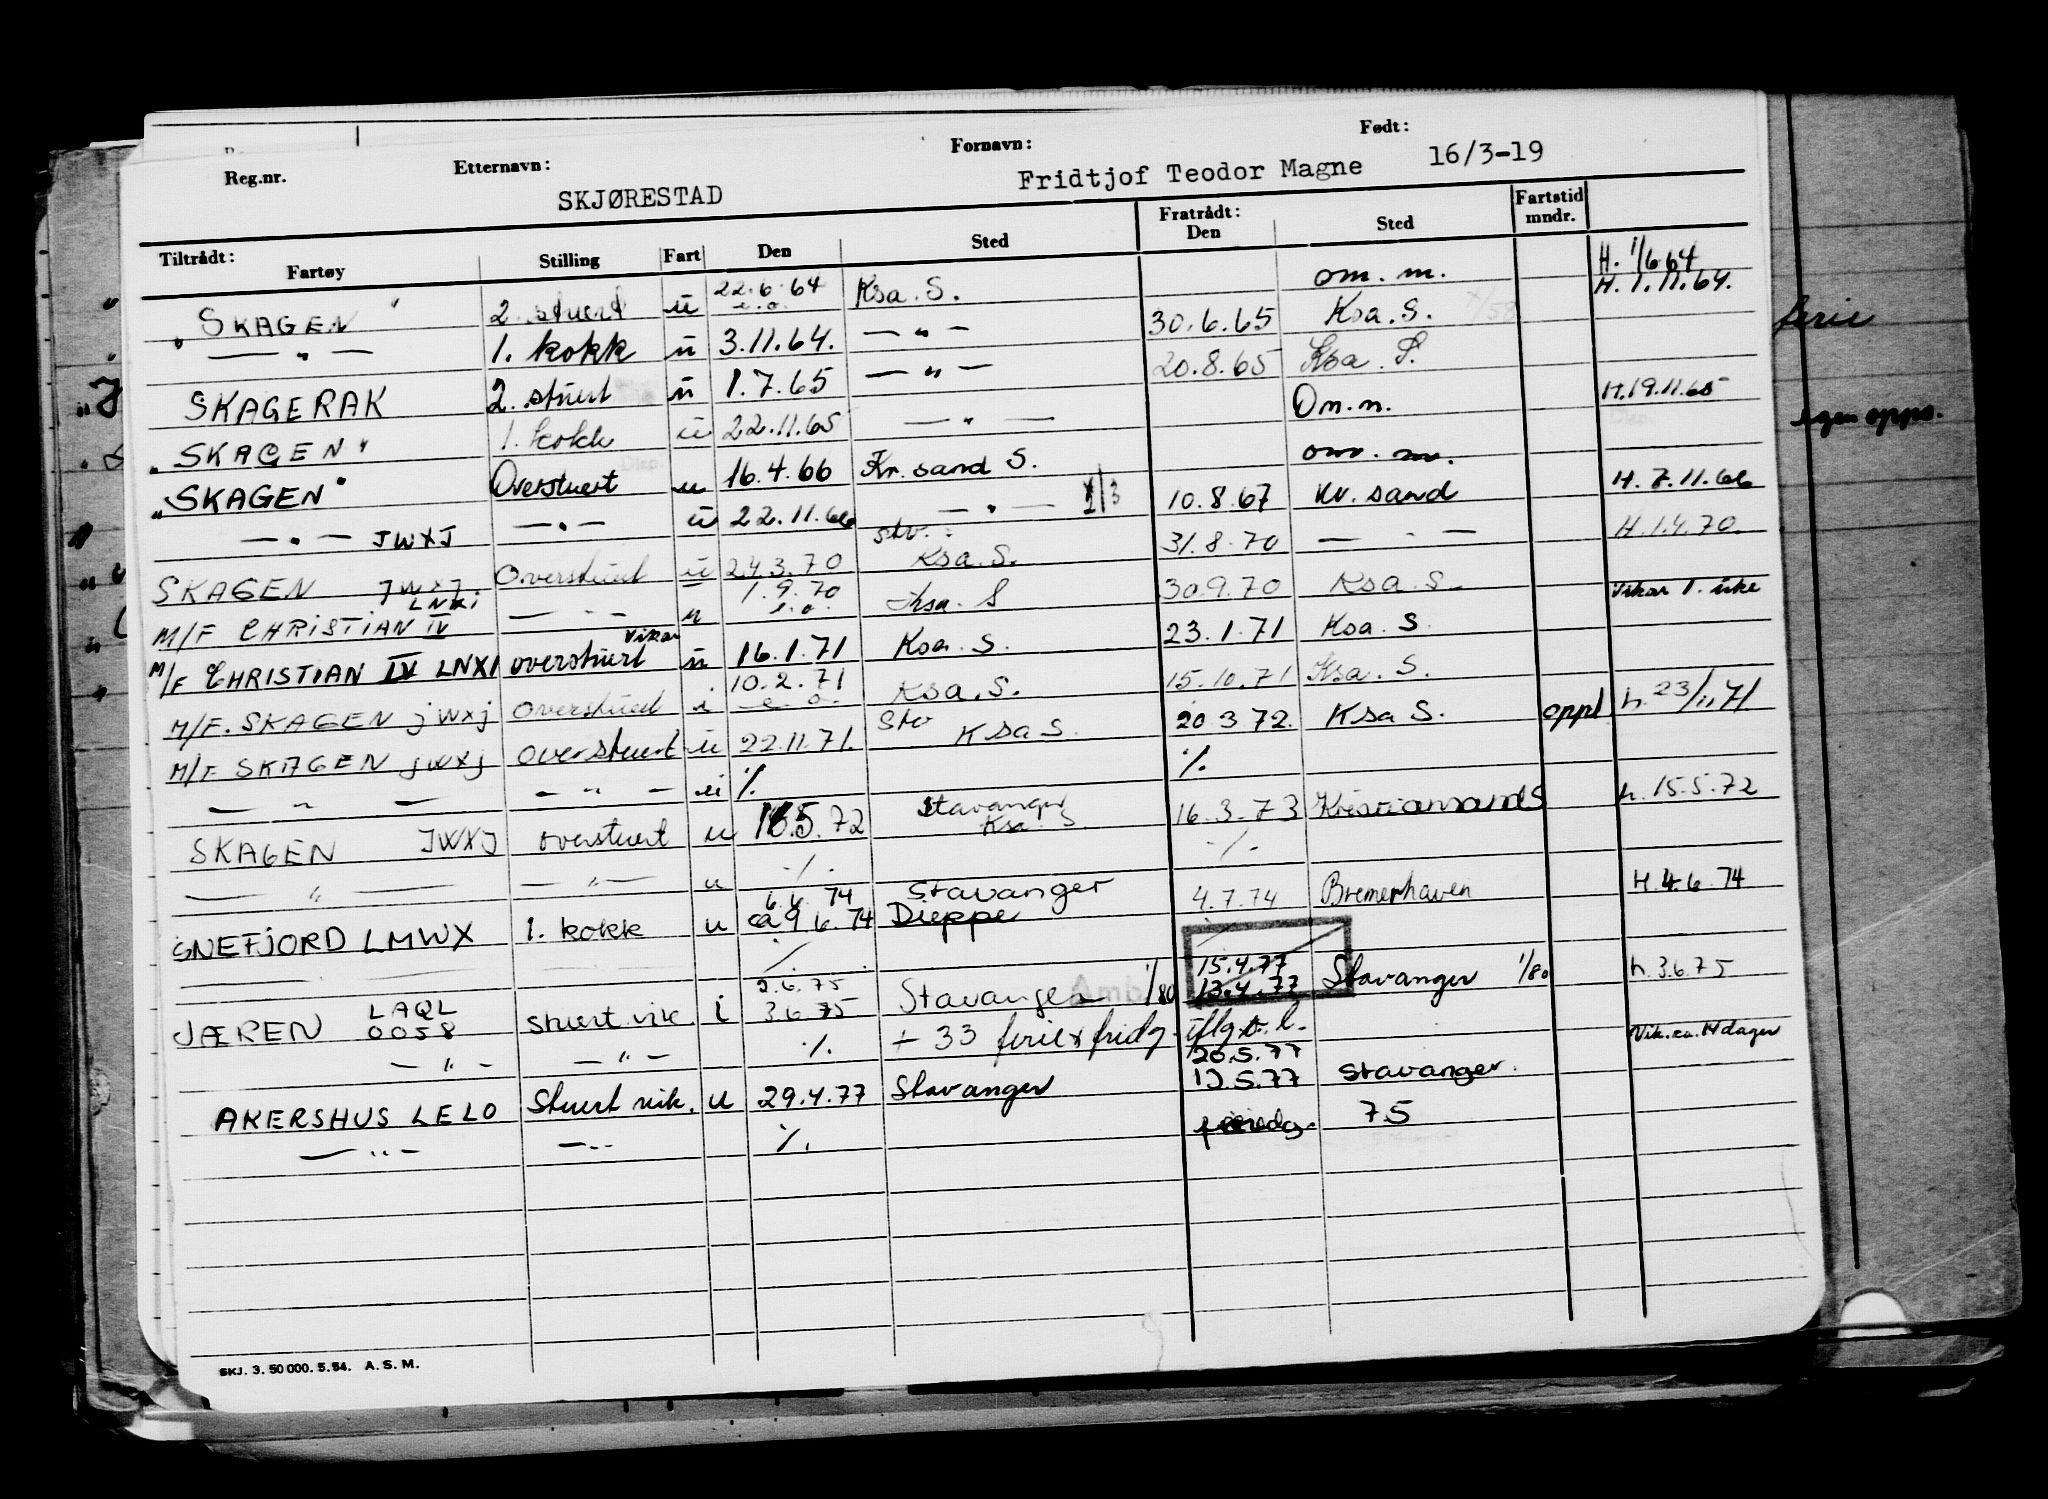 Reg.nr. Etternavn: Fornavn: Født:
SKJØRESTAD Fridtjof Teodor Magne 16/3-19
Tiltrådt: Fartøy Stilling Fart Den Sted Fratrådt: Den Sted Fartstid mndr.
"SKAGEN" 2. stuert u 22.6.64 e.o. Ksa. S. om. m. H. 1/6 64
— " — 1. kokk u 3.11.64. — " — 30.6.65 Ksa. S. H. 1.11.64.
SKAGERAK 2. stuert u 1.7.65 — " — 20.8.65 Ksa. S.
"SKAGEN" 1. kokk u 22.11.65 — " — Om.m. H.19.11.65
"SKAGEN" Overstuert u 16.4.66 Kr. sand S. om. m.
— " — JWXJ — " — u 22.11.66 — " — 1/3 10.8.67 Kr. sand H. 7.11.66
SKAGEN JWXJ Overstuert u 24.3.70 stv. Ksa. S. 31.8.70 — " — H. 1.4.70.
M/F CHRISTIAN IV LNXI — " — u 1.9.70 e.o. Ksa. S 30.9.70 Ksa. S.
M/F CHRISTIAN IV LNXI overstuert vikar u 16.1.71 Ksa. S. 23.1.71 Ksa. S. Vikar 1. uke
M/F. SKAGEN jwxj overstuert u 10.2.71 e.o. Ksa. S. 15.10.71 Ksa. S.
M/F SKAGEN jwxj overstuert u 22.11.71. Stv Ksa S. 20.3.72. Ksa S. oppl h. 23/11.71
— " — — " — u ./. ./.
SKAGEN JWXJ overstuert u 16.5.72 Stavanger Ksa. S. 16.3.73 Kristiansand S h. 15.5.72
— " — — " — u ./. ./.
SNEFJORD LMWX 1. kokk u 6.6.74 ca 9.6.74 Stavanger Dieppe 4.7.74 Bremerhaven H.4.6.74
JÆREN LAQL 0058 Stuert vik. i 2.6.75 3.6.75 Stavanger 1/80 15.4.77 13.4.77 Stavanger 1/80 h. 3.6.75
— " — — " — ./. + 33 ferie+fridg. iflg.
AKERSHUS LELO Stuert vik. u 29.4.77 Stavanger 20.5.77 Stavanger. Vik. ca. 14 dager
— " — — " — ./. 75
SKJ. 3. 50 000. 5.54. A. S. M.
ferie
egen opps.